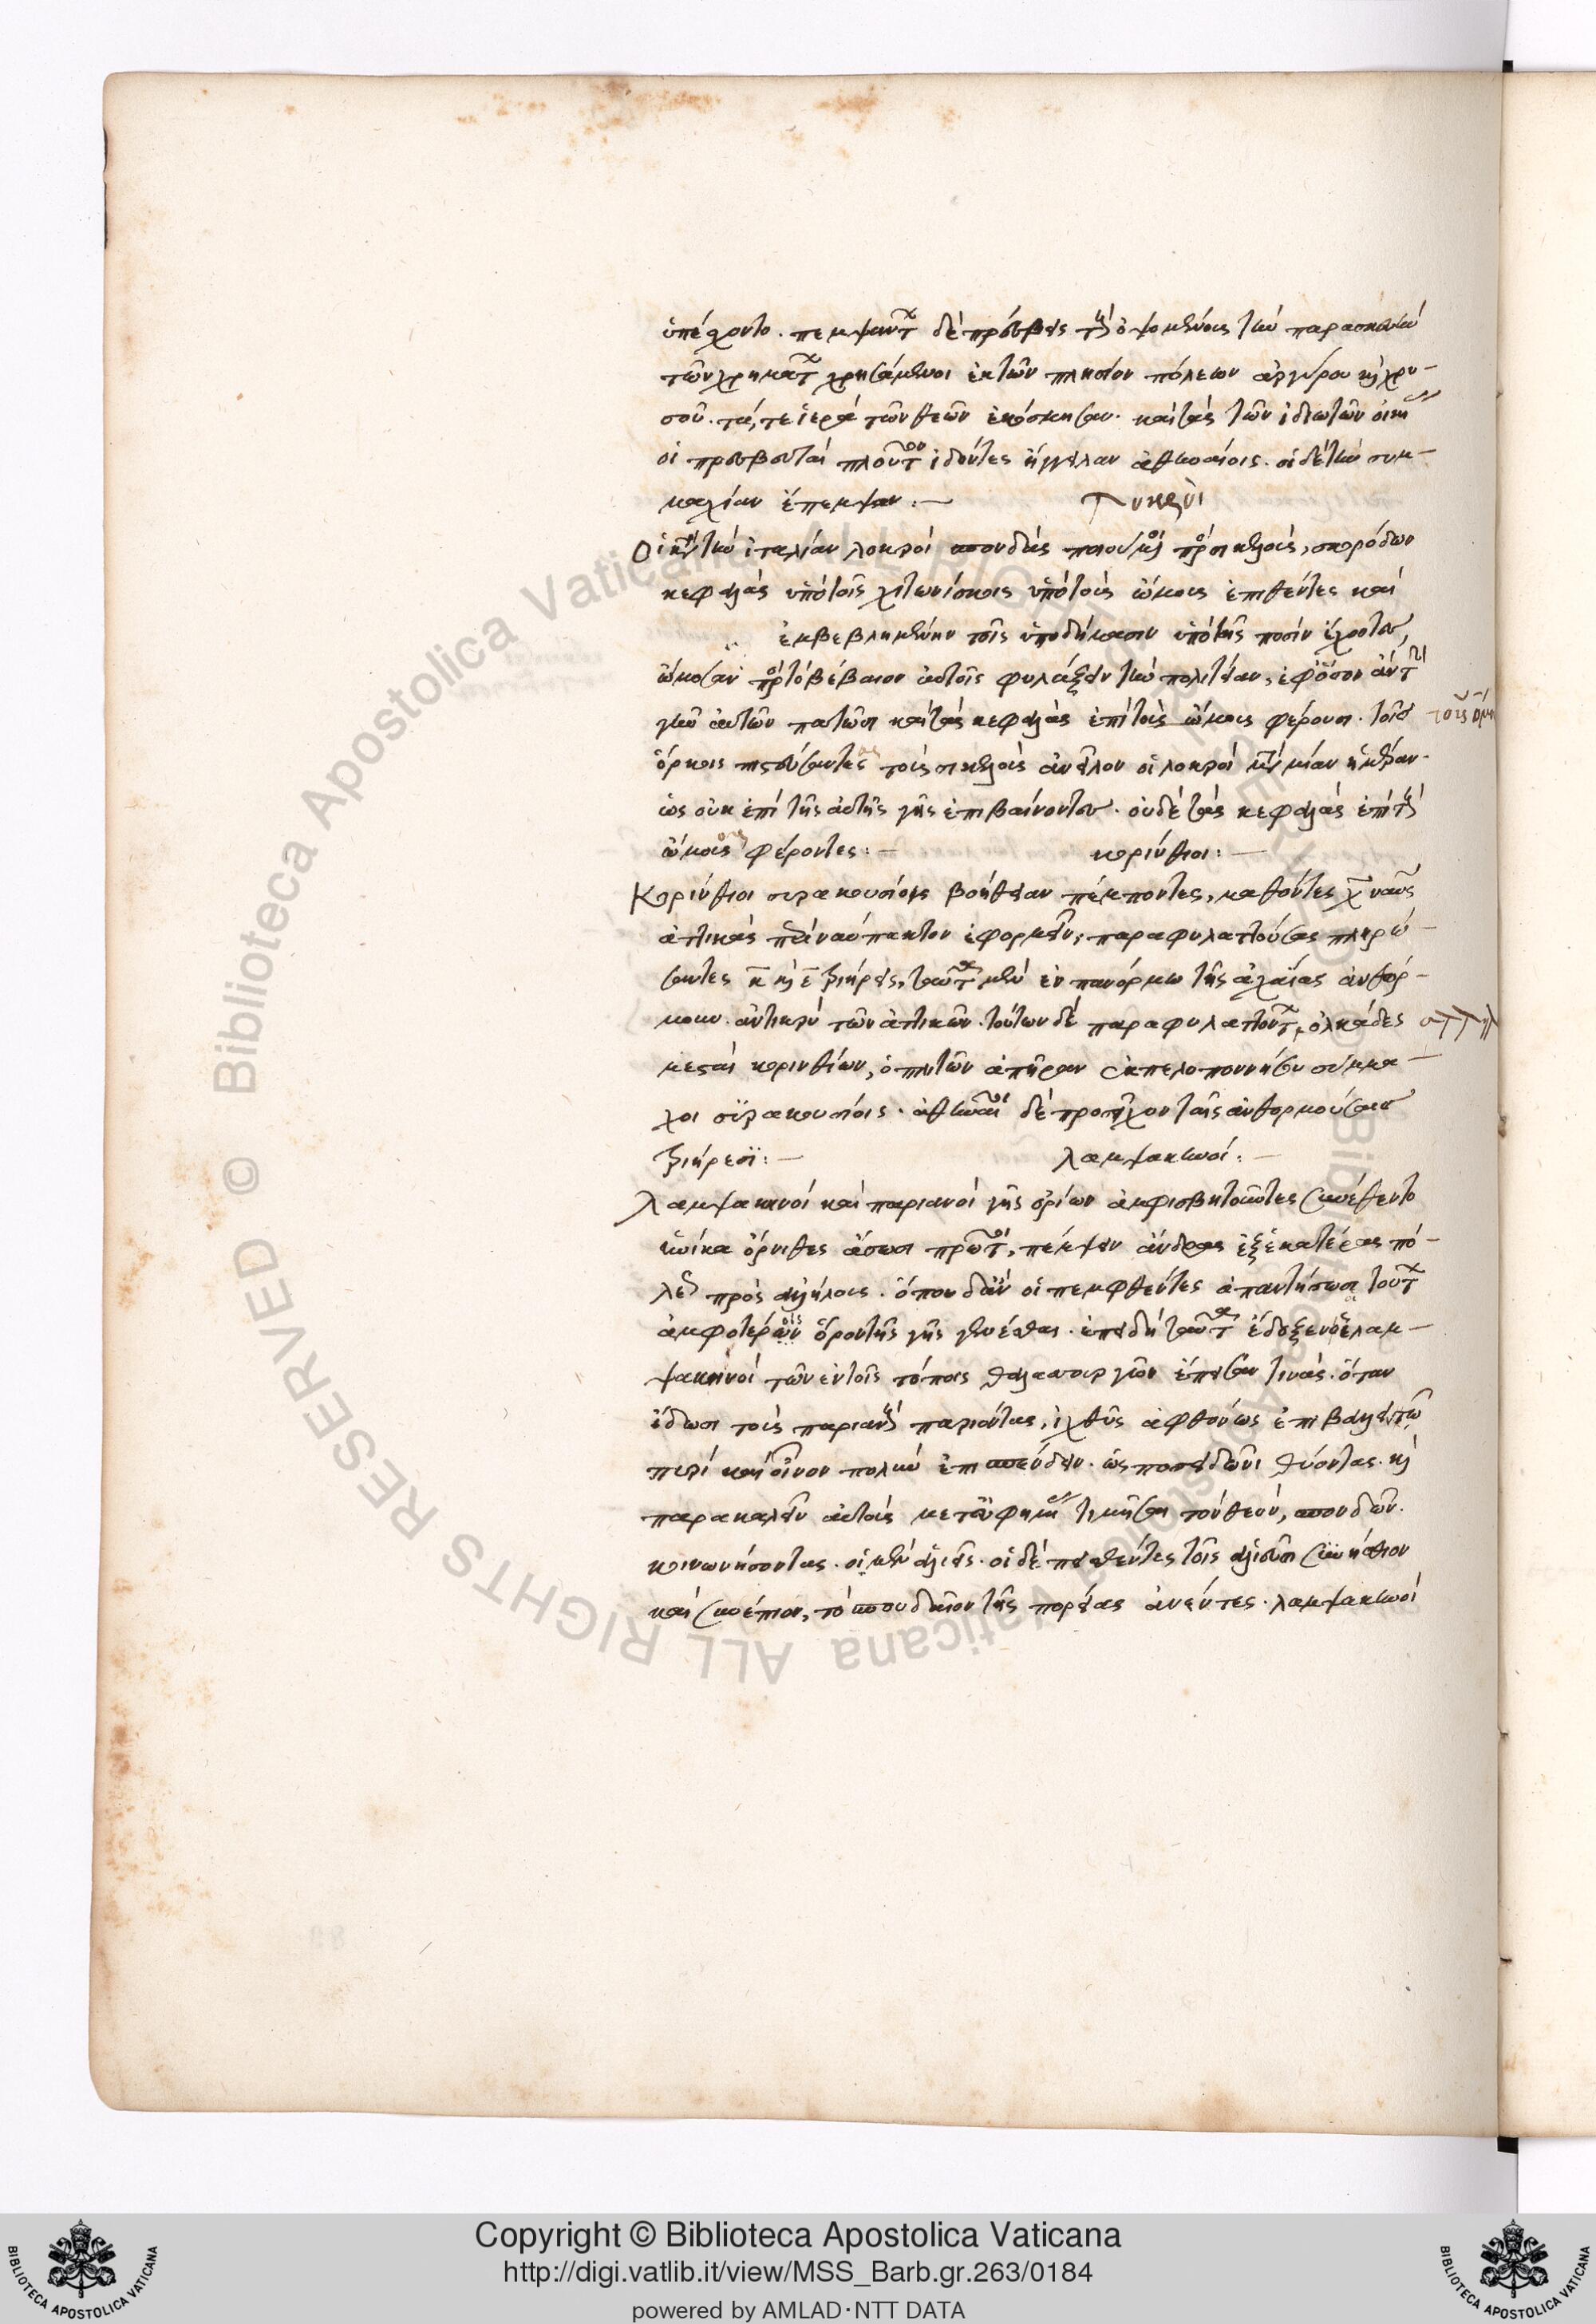 ὑπέσχοντο. πεμψάντων δὲ πρέσβεις τοὺς ὀψομένους τὴν παρασκευὴν
τῶν χρημάτων χρησάμενοι ἐκ τῶν πλησίον πόλεων ἀργύρου καὶ χρυ-
σοῦ. τά, τε ἱερὰ τῶν θεῶν ἐκόσμησαν. καὶ τὰς τῶν ἰδιωτῶν οἰκίας
οἱ πρεσβευταὶ πλοῦτον ἰδόντες ἤγγειλαν ἀθηναίοις. οἱ δὲ τὴν συμ-
μαχίαν ἔπεμψαν:—
Οἱ κατὰ τὴν ἰταλίαν λοκροὶ σπονδὰς ποιούμενοι πρὸς σικελοὺς, σκορόδων
κεφαλὰς ὑπὸ τοῖς χιτωνίσκοις ὑπὸ τοὺς ὤμους ἐπιθέντες καὶ
ἐμβεβλημένην τοῖς ὑποδήμασιν ὑπὸ τοῖς ποσὶν ἔχοντες,
ὤμοσαν πρὸς τὸ βέβαιον αὐτοῖς φυλάξειν τὴν πολιτείαν, ἐφόσον ἂν τὴν
γῆν αὐτῶν πατῶσι καὶ τὰς κεφαλὰς ἐπὶ τοὺς ὤμους φέρουσι. τοῖς
ὅρκοις πιστεύσαντας τοὺς σικελοὺς ἀνεῖλον οἱ λοκροὶ κατὰ μίαν ἡμέραν.
ὡς οὐκ ἐπὶ τῆς αὐτῆς γῆς ἐπιβαίνοντες. οὐδὲ τὰς κεφαλὰς ἐπὶ τοὺς
ὤμους φέροντες:— κορίνθιοι:—
Κορίνθιοι συρακουσίοις βοήθειαν πέμποντες, μαθόντες χ ναῦς
ἀττικὰς περὶ ναύπακτον ἐφορμεῖν, παραφυλαττούσας πληρώ-
σαντες κ καὶ ε τριήρεις, ταύτας μὲν ἐν πανόρμω τῆς ἀχαΐας ἀνθώρ-
μουν. ἀντικρὺ τῶν ἀττικῶν. τούτων δὲ παραφυλαττόντων, ὁλκάδες
μεσταὶ κορινθίων, ὁπλιτῶν ἀπῆραν ἐκ πελοποννήσου σύμμα-
χοι συρακουσίοις. ἀθηναῖοι δὲ προσεῖχον ταῖς ἀνθορμούσαις
τριήρεσι:— λαμψακηνοί:—
λαμψακηνοὶ καὶ παριανοὶ γῆς ὁρίων ἀμφισβητοῦντες συνέθεντο
ἡνίκα ὄρνιθες ἄσωσι πρῶτοι, πέμψειν ἄνδρας ἐξ ἑκατέρας πό-
λεως πρὸς ἀλλήλους. ὅπου δἂν οἱ πεμφθέντες ἀπαντήσωσι τοῦτον
ἀμφοτέροις ὅρον τῆς γῆς γενέσθαι. ἐπειδὴ ταῦτα ἔδοξεν οἱ λαμ-
ψακηνοὶ τῶν ἐν τοῖς τόποις θαλασσουργῶν ἔπεισαν τινάς. ὅταν
ἴδωσι τοὺς παριανοὺς παριόντας, ἰχθῦς ἀφθόνως ἐπιβαλεῖν τῶ
πυρὶ καὶ οἶνον πολὺν ἐπισπένδειν. ὡς ποσειδῶνι θύοντας. καὶ
παρακαλεῖν αὐτοὺς μετ' εὐφημίας τιμῆσαι τὸν θεὸν, σπονδῶν.
κοινωνήσοντας. οἱ μὲν ἁλιεῖς. οἱ δὲ πεισθέντες τοῖς ἁλιεῦσι συνήσθιον
καὶ συνέπινον, τὸ σπουδαῖον τῆς πορείας ἀνέντες. λαμψακηνοὶ
Copyright © Biblioteca Apostolica Vaticana
http://digi.vatlib.it/view/MSS_Barb.gr.263/0184
powered by AMLAD·NTT DATA